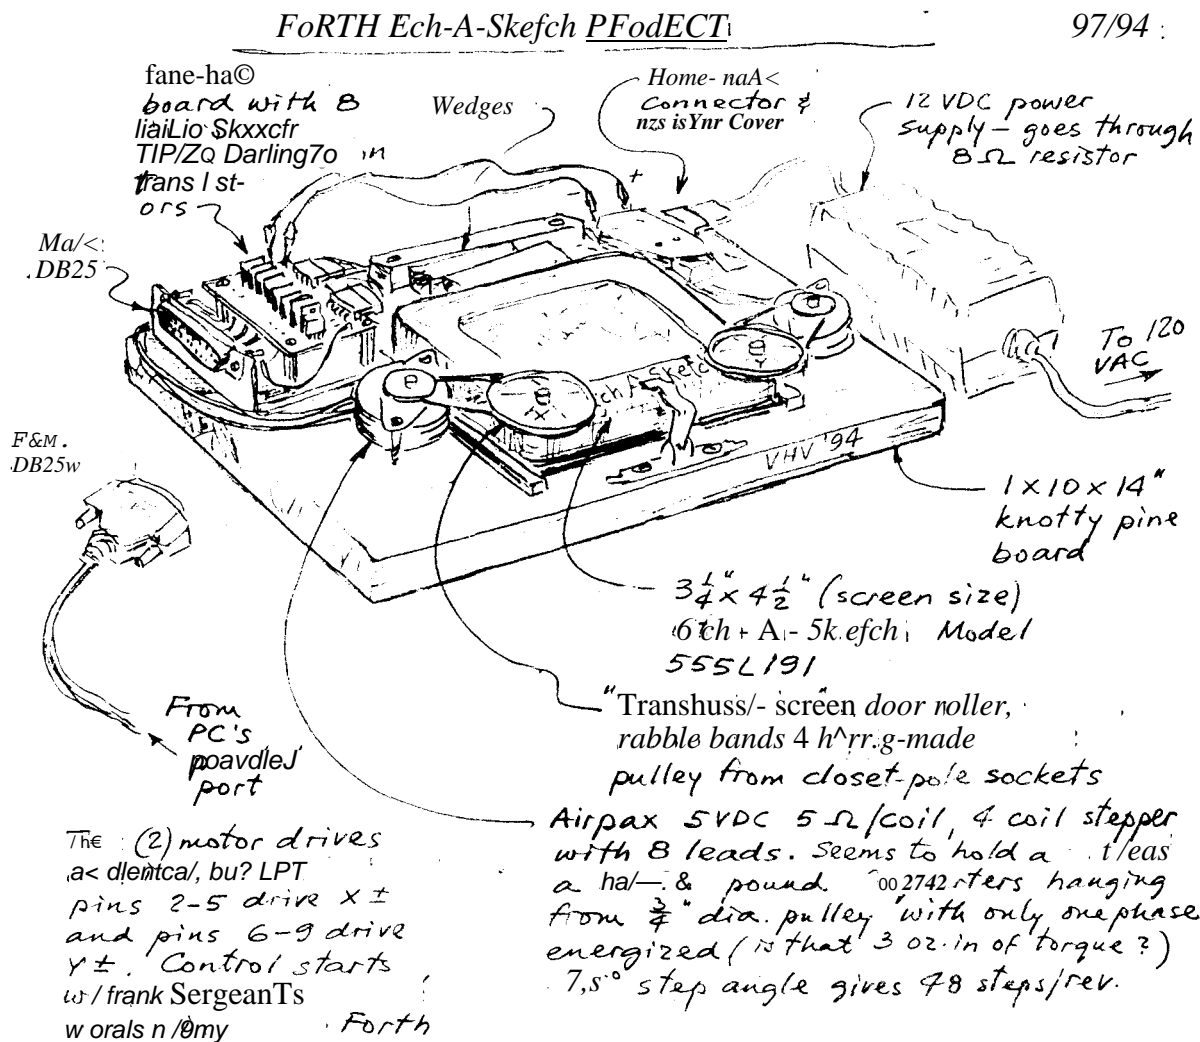 FoRTH Ech-A-Skefch PFodECT 97/94
fane-ha©
board with 8
liaiLio Skxxcfr
TIP/ZQ Darling7o in
trans l st-
ors
Wedges
Home- naA<
connector &
nzs isYnr Cover
12 VDC power
supply – goes through
8 Ω resistor
Ma/<
DB25
+
To 120
VAC
F&M.
DB25w
X
Y
ch A Sketch
VHV '94
1 x 10 x 14"
knotty pine
board
3 1/4" x 4 1/2" (screen size)
6 ch + A - 5k.efch Model
555L191
"Transhuss/- screen door noller,
rabble bands 4 h^rr.g-made
pulley from closet-pole sockets
From
PC's
poavdleJ
port
Airpax 5VDC 5 Ω/coil, 4 coil stepper
with 8 leads. Seems to hold a t/eas
a ha/—. & pound. 002742 rters hanging
from 3/4" dia. pulley with only one phase
energized (is that 3 oz.in of torque?)
7,s° step angle gives 48 steps/rev.
Th€ (2) motor drives
a< dlentca/, bu? LPT
pins 2-5 drive X ±
and pins 6-9 drive
Y ±. Control starts
w/ frank SergeanTs
w orals n /9my Forth